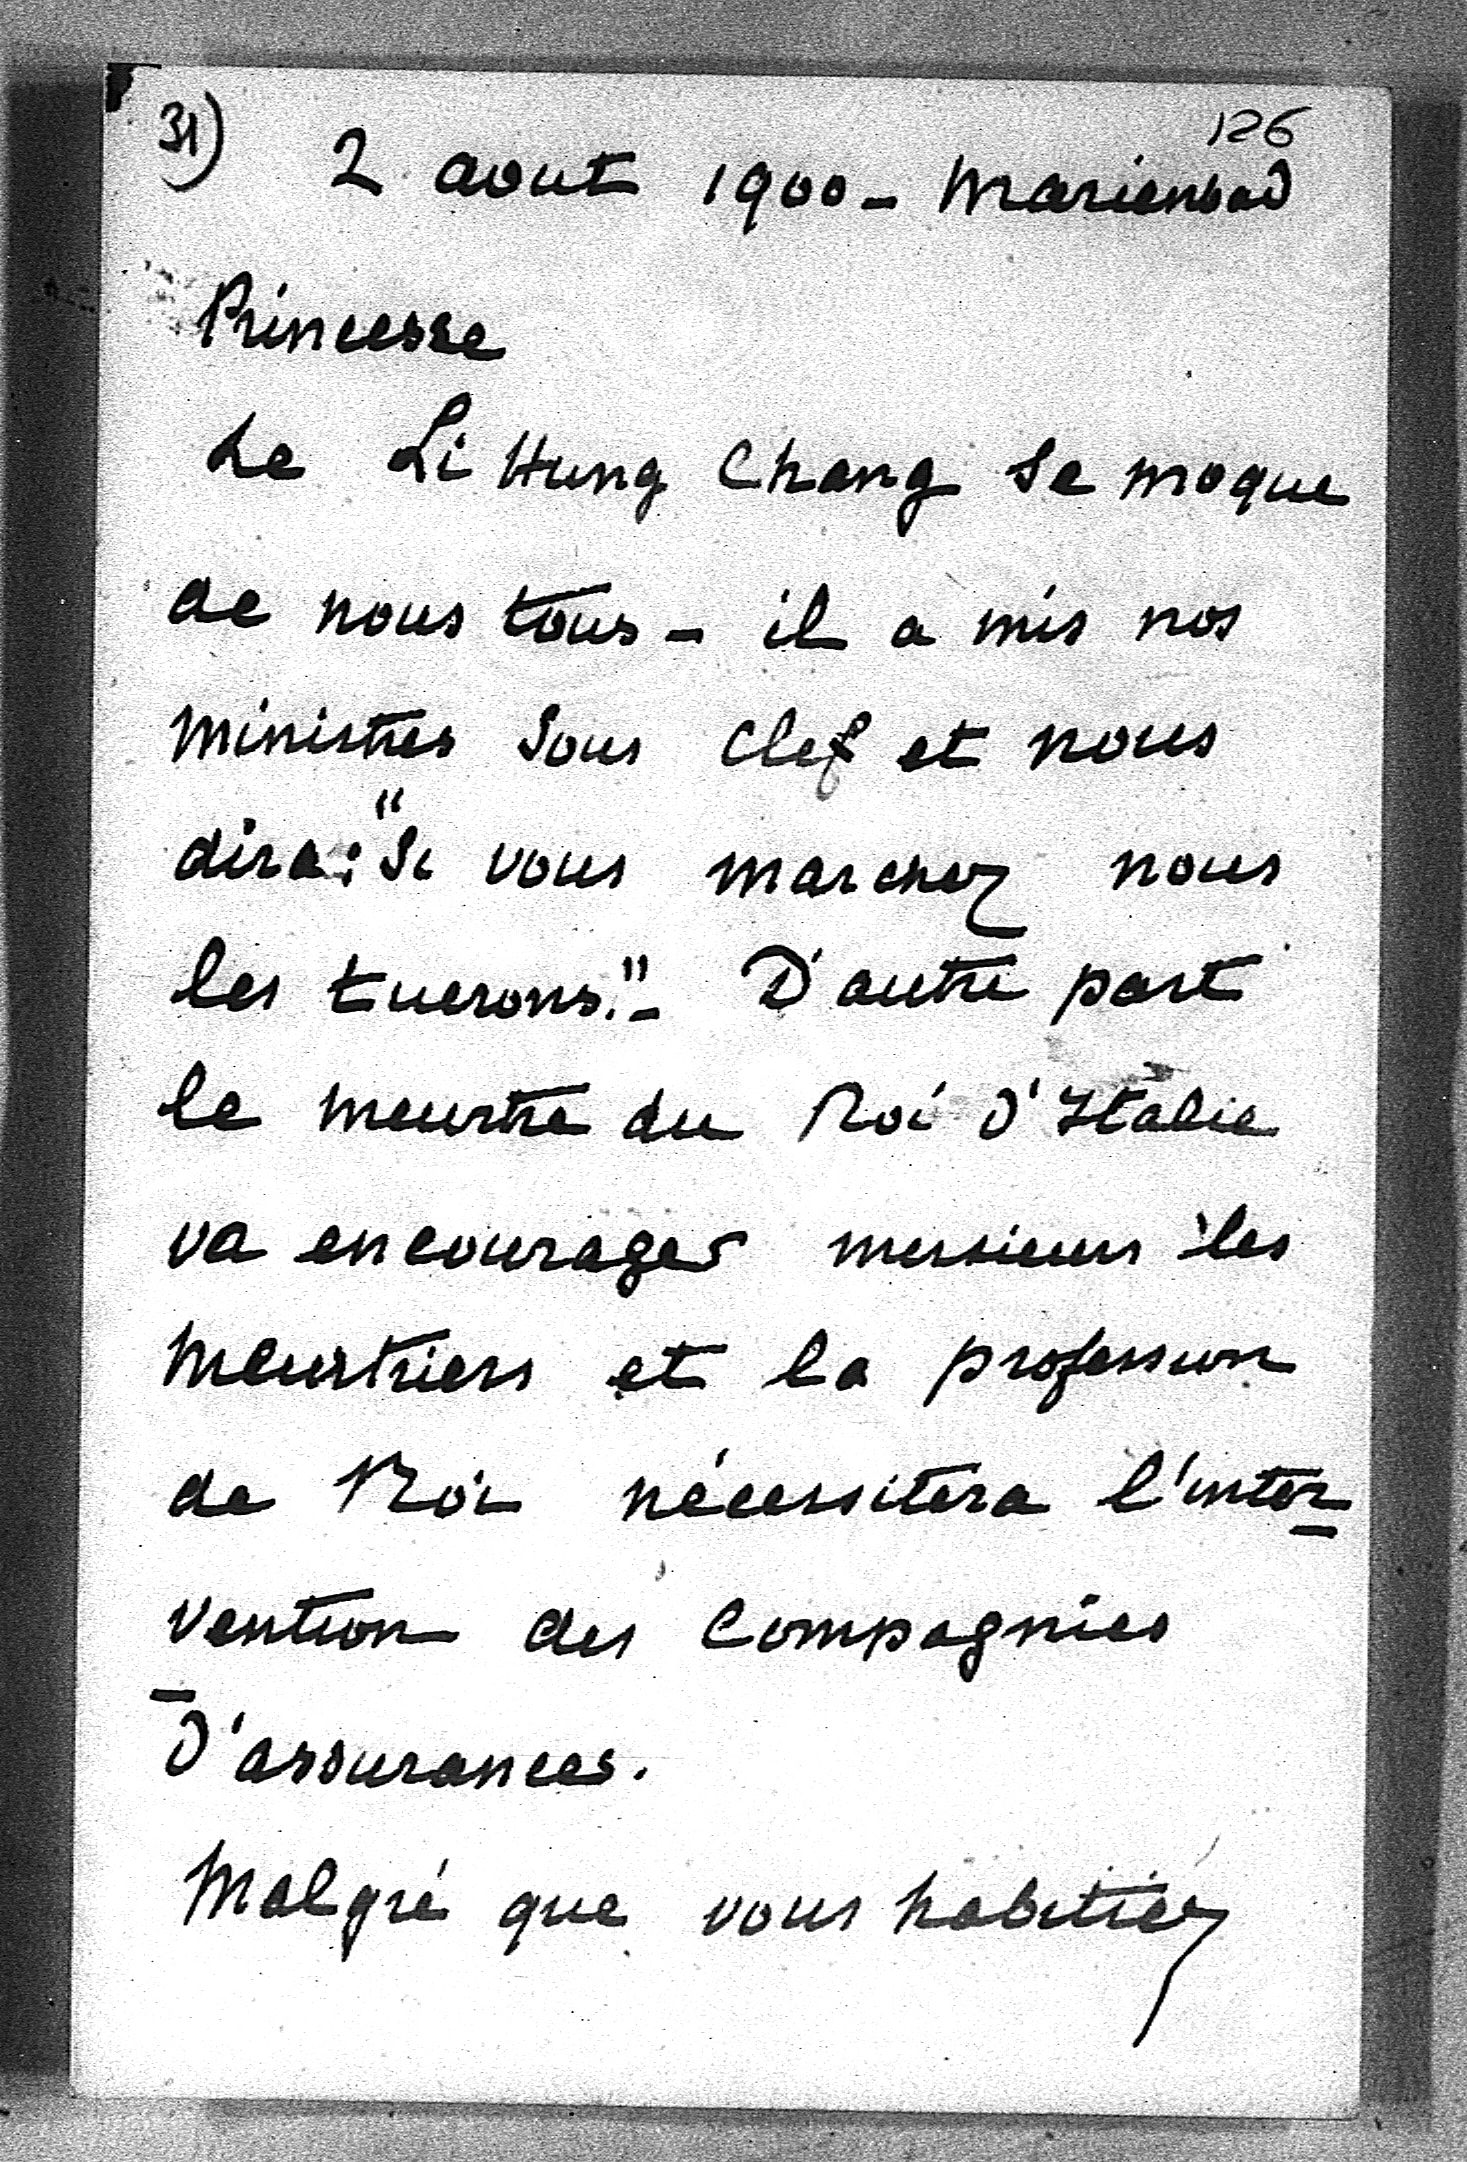 31)
126
2 aout 1900 - Marienbad
Princesse
Le Li Hung Chang se moque
de nous tous - il a mis nos
ministres sous clef et nous
dira: "Si vous marchez nous
les tuerons." - D'autre part
le meurtre du Roi d'Italie
va encourager messieurs les
meurtriers et la profession
de Roi nécessitera l'inter-
-vention des Compagnies
d'assurances.
Malgré que vous habitiez